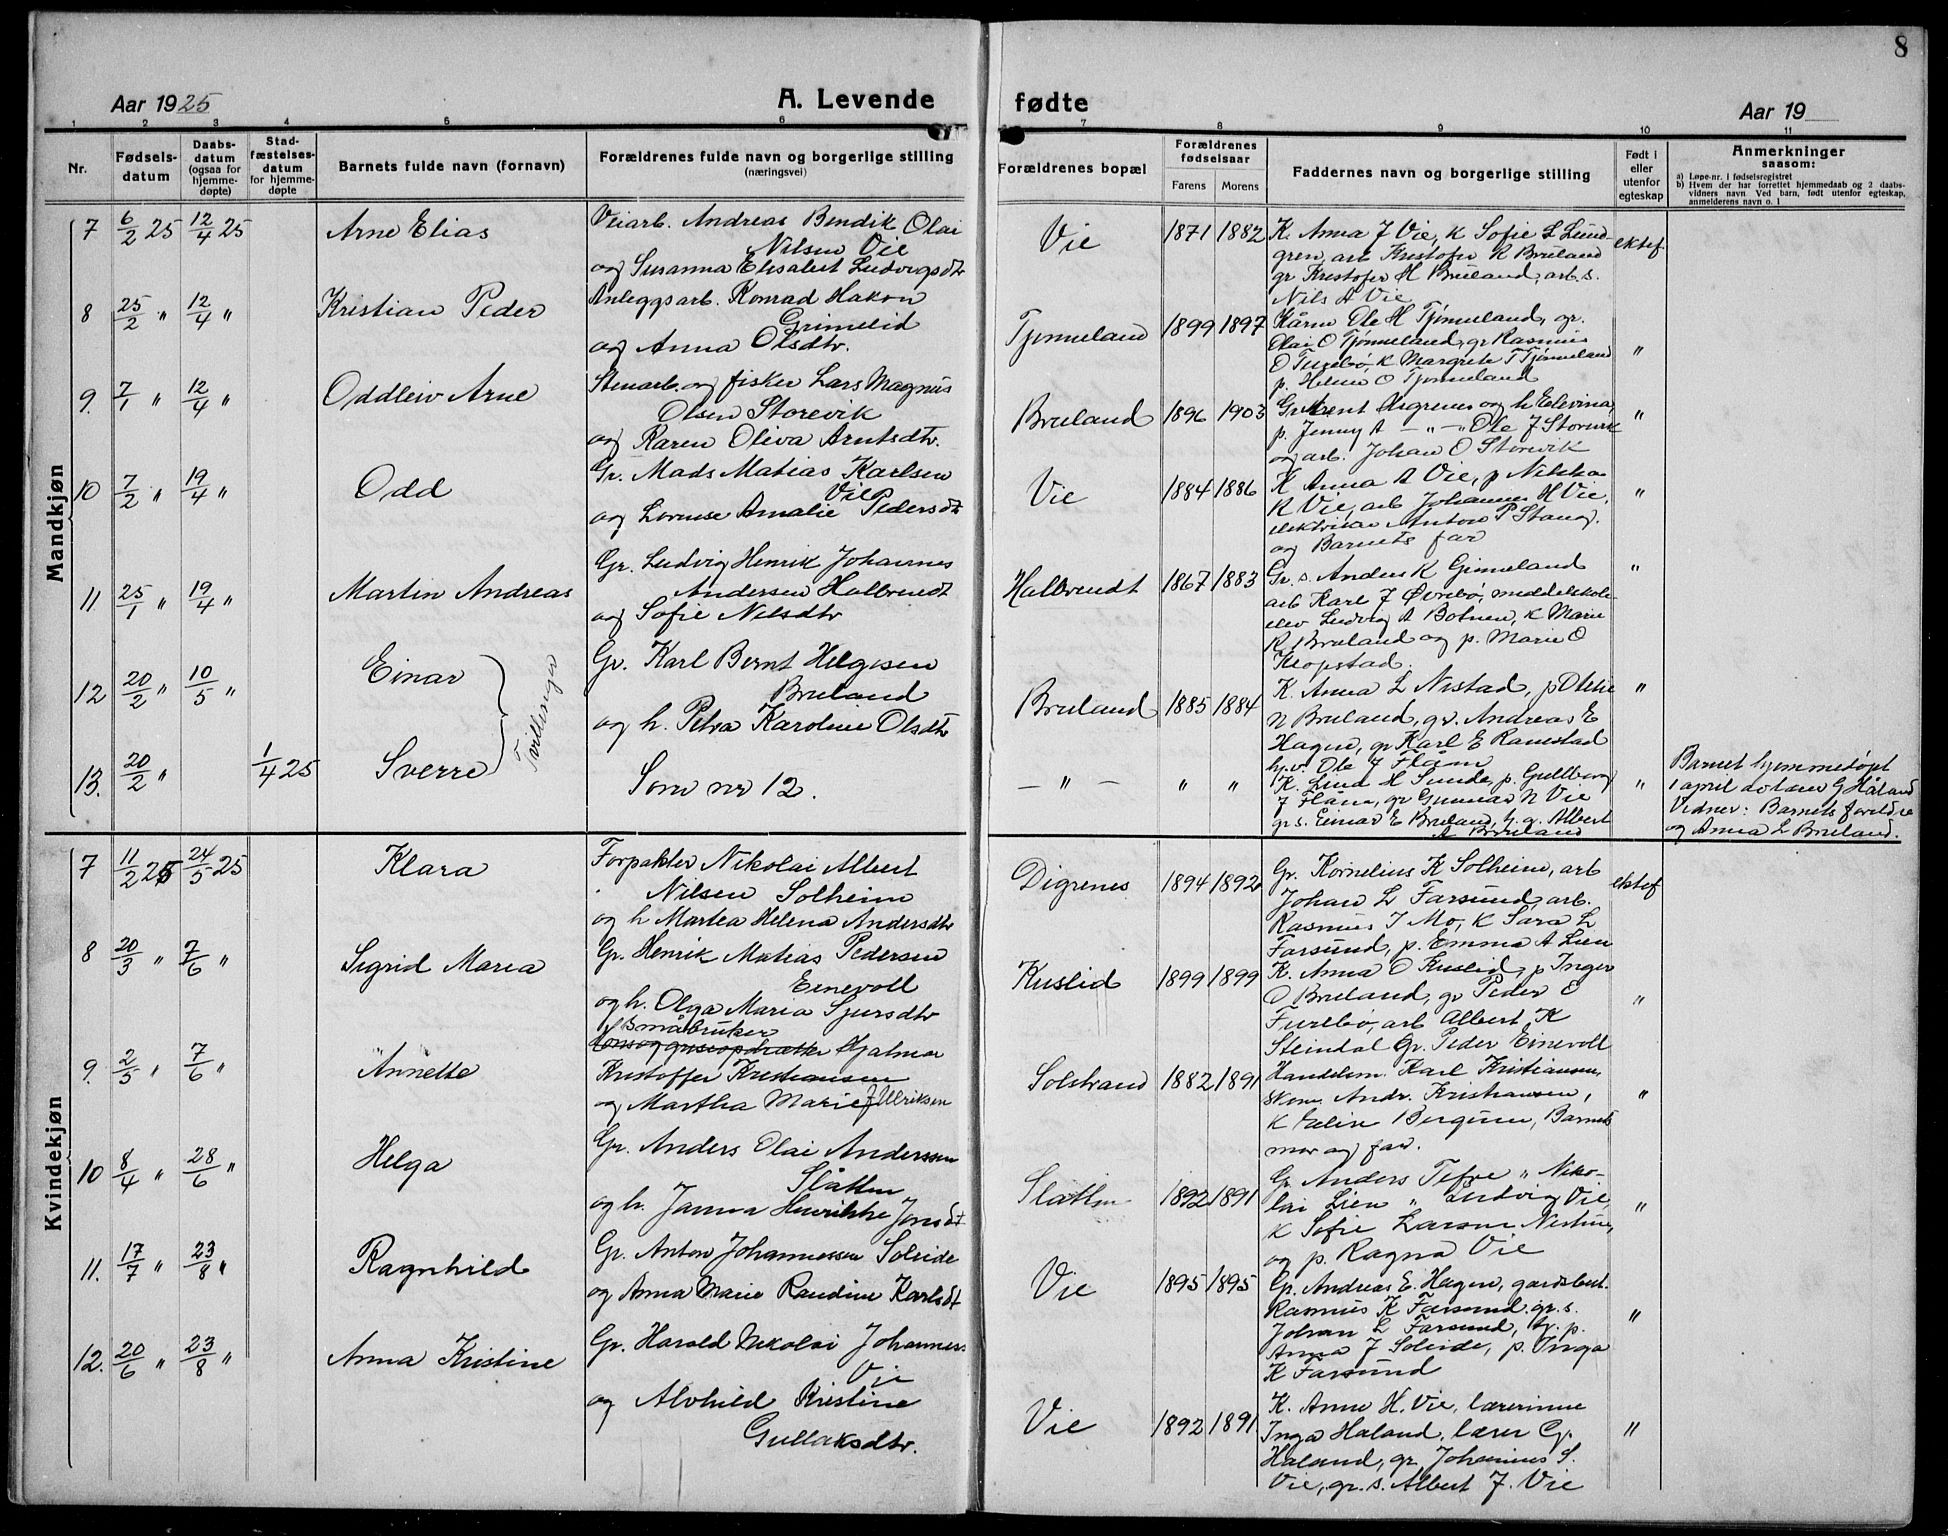 8
Aar 1925
A. Levende
fødte
Aar 19
1 2 3 4 5 6 7 8 9 10 11
Nr.
Fødsels-
datum
Daabs-
datum
(ogsaa for
hjemme-
døpte)
Stad-
fæstelses-
datum
for hjemme-
døpte
Barnets fulde navn (fornavn)
Forældrenes fulde navn og borgerlige stilling
(næringsvei)
Forældrenes bopæl
Forældrenes
fødselsaar
Farens
Morens
Faddernes navn og borgerlige stilling
Født i
eller
utenfor
egteskap
Anmerkninger
saasom:
a) Løpe-nr. i fødselsregistret
b) Hvem der har forrettet hjemmedaab og 2 daabs-
vidners navn. Ved barn, født utenfor egteskap,
anmelderens navn o. l.
Mandkjøn
7 6/2 25 12/4 25 Arne Elias
Veiarb. Andreas Bendik Olai
Nilsen Vie
og Susanna Elisabet Ludvigsdtr
Vie 1871 1882
K. Anna J Vie, K Sofie L Lund-
gren, arb Kristofer K Bruland
gr Kristofer H Bruland, arb. s.
Nils A Vie
ektef.
8 25/2 " 12/4 " Kristian Peder
Anleggsarb. Konrad Hakon
Grimelid
og Anna Olsdtr.
Tjønneland 1899 1897
Kårm Ole H Tjønneland, gr.
Olai O Tjønneland, gr Rasmus
O Furebø, K Margrete T Tjønneland
p. Helene O Tjønneland
"
9. 7/1 " 12/4 " Oddleiv Arne
Stenarb. og fisker Lars Magnus
Olsen Storevik
og Karen Oliva Arntsdtr.
Bruland 1896 1903
Gr Arent Digrenes og h Elevina,
p. Jenny A — " — Ole J Storevik
og arb. Johan O Storevik
"
10 7/2 " 19/4 " Odd
Gr. Mads Matias Karlsen
Vie
og Lovise Amalie Pedersdt
Vie 1884 1886
K Anna A Vie, p Nilska
K Vie, arb Johannes H Vie,
elektriker Anton P Stang,
og Barnets far
"
11 25/1 " 19/4 " Martin Andreas
Gr. Ludvig Henrik Johannes
Andersen Halbrendt
og Sofie Nilsdtr
Halbrendt 1867 1883
Gr. s. Anders K Gimeland
arb Karl J Øvrebø, middelskole-
elev Ludvig A Botnen, K Marie
R Bruland og p. Marie O
Klopstad.
"
12 20/2 " 10/5 " Einar
Tvillinger
Gr. Karl Bernt Helgesen
Bruland
og h. Petra Karoline Olsdtr
Bruland 1885 1884
K. Anna L Nistad, p Oletie
N Bruland, gr. Andreas E
Hagen, gr Karl E Ramstad
h.v. Ole J Flåm
"
13. 20/2 " 1/4 25 Sverre
Som nr 12.
— " — " "
K. Lina H Sunde, p. Gullborg
J Flåm, gr Gunnar N Vie
gr s. Einar E Bruland, t. g. Albert
A Bruland
"
Barnet hjemmedøpt
1 april av lærer G Håland
Vidner: Barnets foreldre
og Anna L Bruland.
Kvindekjøn
7 11/2 25 24/5 25 Klara
Forpakter Nikolai Albert
Nilsen Solheim
og h Martea Helena Andersdtr
Digrenes 1894 1892
Gr. Kornelius K Solheim, arb
Johan L Farsund, arb.
Rasmus J Mo, K Sara L
Farsund, p. Emma A Lien
ektef
8 20/3 " 7/6 " Sigrid Maria
Gr. Henrik Matias Pedersen
Einevoll
og h. Olga Maria Sjursdtr
Kuslid 1899 1899
K. Anna O Kuslid, p Inger
O Bruland, gr Peder E
Furebø, arb Albert K
Steindal Gr. Peder Einevoll
"
9. 2/5 " 7/6 " Annette
Småbruker
Hjalmar
Kristoffer Kristiansen
og Martha Marie f Ulriksen
Solstrand 1882 1891
Handelsm. Karl Kristiansen,
skom. Andr. Kristiansen,
K Elise Bergum, Barnets
mor og far.
"
10 8/4 " 28/6 " Helga
Gr. Anders Olai Anderssen
Slåtten
og h. Janna Henrikke Jonsdt
Slåtten 1892 1891
Gr Anders Tefre " Niko-
lai Lien " Ludvig Vie,
K Sofie Larsen Nistun,
og p. Ragna Vie
"
11. 17/7 " 23/8 " Ragnhild
Gr. Anton Johannessen Soleide
og Anna Marie Randine Karlsdt
Vie 1895 1895
Gr. Andreas E. Hagen, gardsbest.
Rasmus K Farsund, gr. s.
Johan L Farsund, tj. p.
Anna J Soleide, p. Inga
K Farsund
"
12. 20/6 " 23/8 " Anna Kristine
Gr. Harald Nikolai Johanness
Vie
og Alvhild Kristine
Gullaksdtr.
Vie 1892 1891.
K. Anne H. Vie, lærerinne
Inga Haland, lærer G.
Haland, gr Johannes S.
Vie, gr. s. Albert J. Vie
"